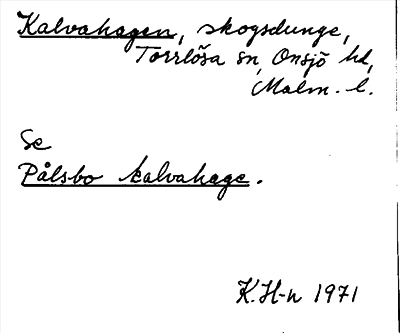 Kalvahagen, skogsdunge,
Torrlösa sn, Onsjö hd,
Malm. l.
Se
Pålsbo kalvahage.
K.H-n 1971